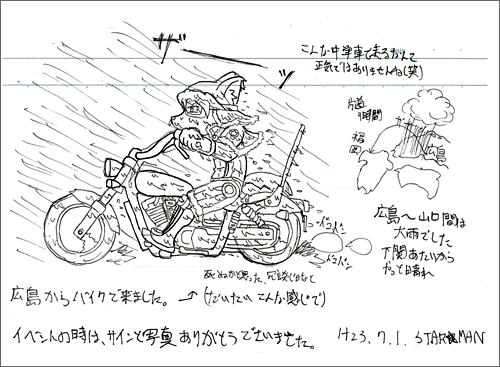 ザーーッ
こんな中単車で走るなんて
正気ではありませんね(笑)
片道
4時間
福岡
広島
広島〜山口間は
大雨でした
下関あたいから
やっと晴れ
バコバン
ドコバン
死ぬかと思った、冗談じなくて
広島からバイクで来ました。→(だいたいこんな感じで)
イベントの時は、サインと写真ありがとうございました。
H23.7.1. STAR MAN